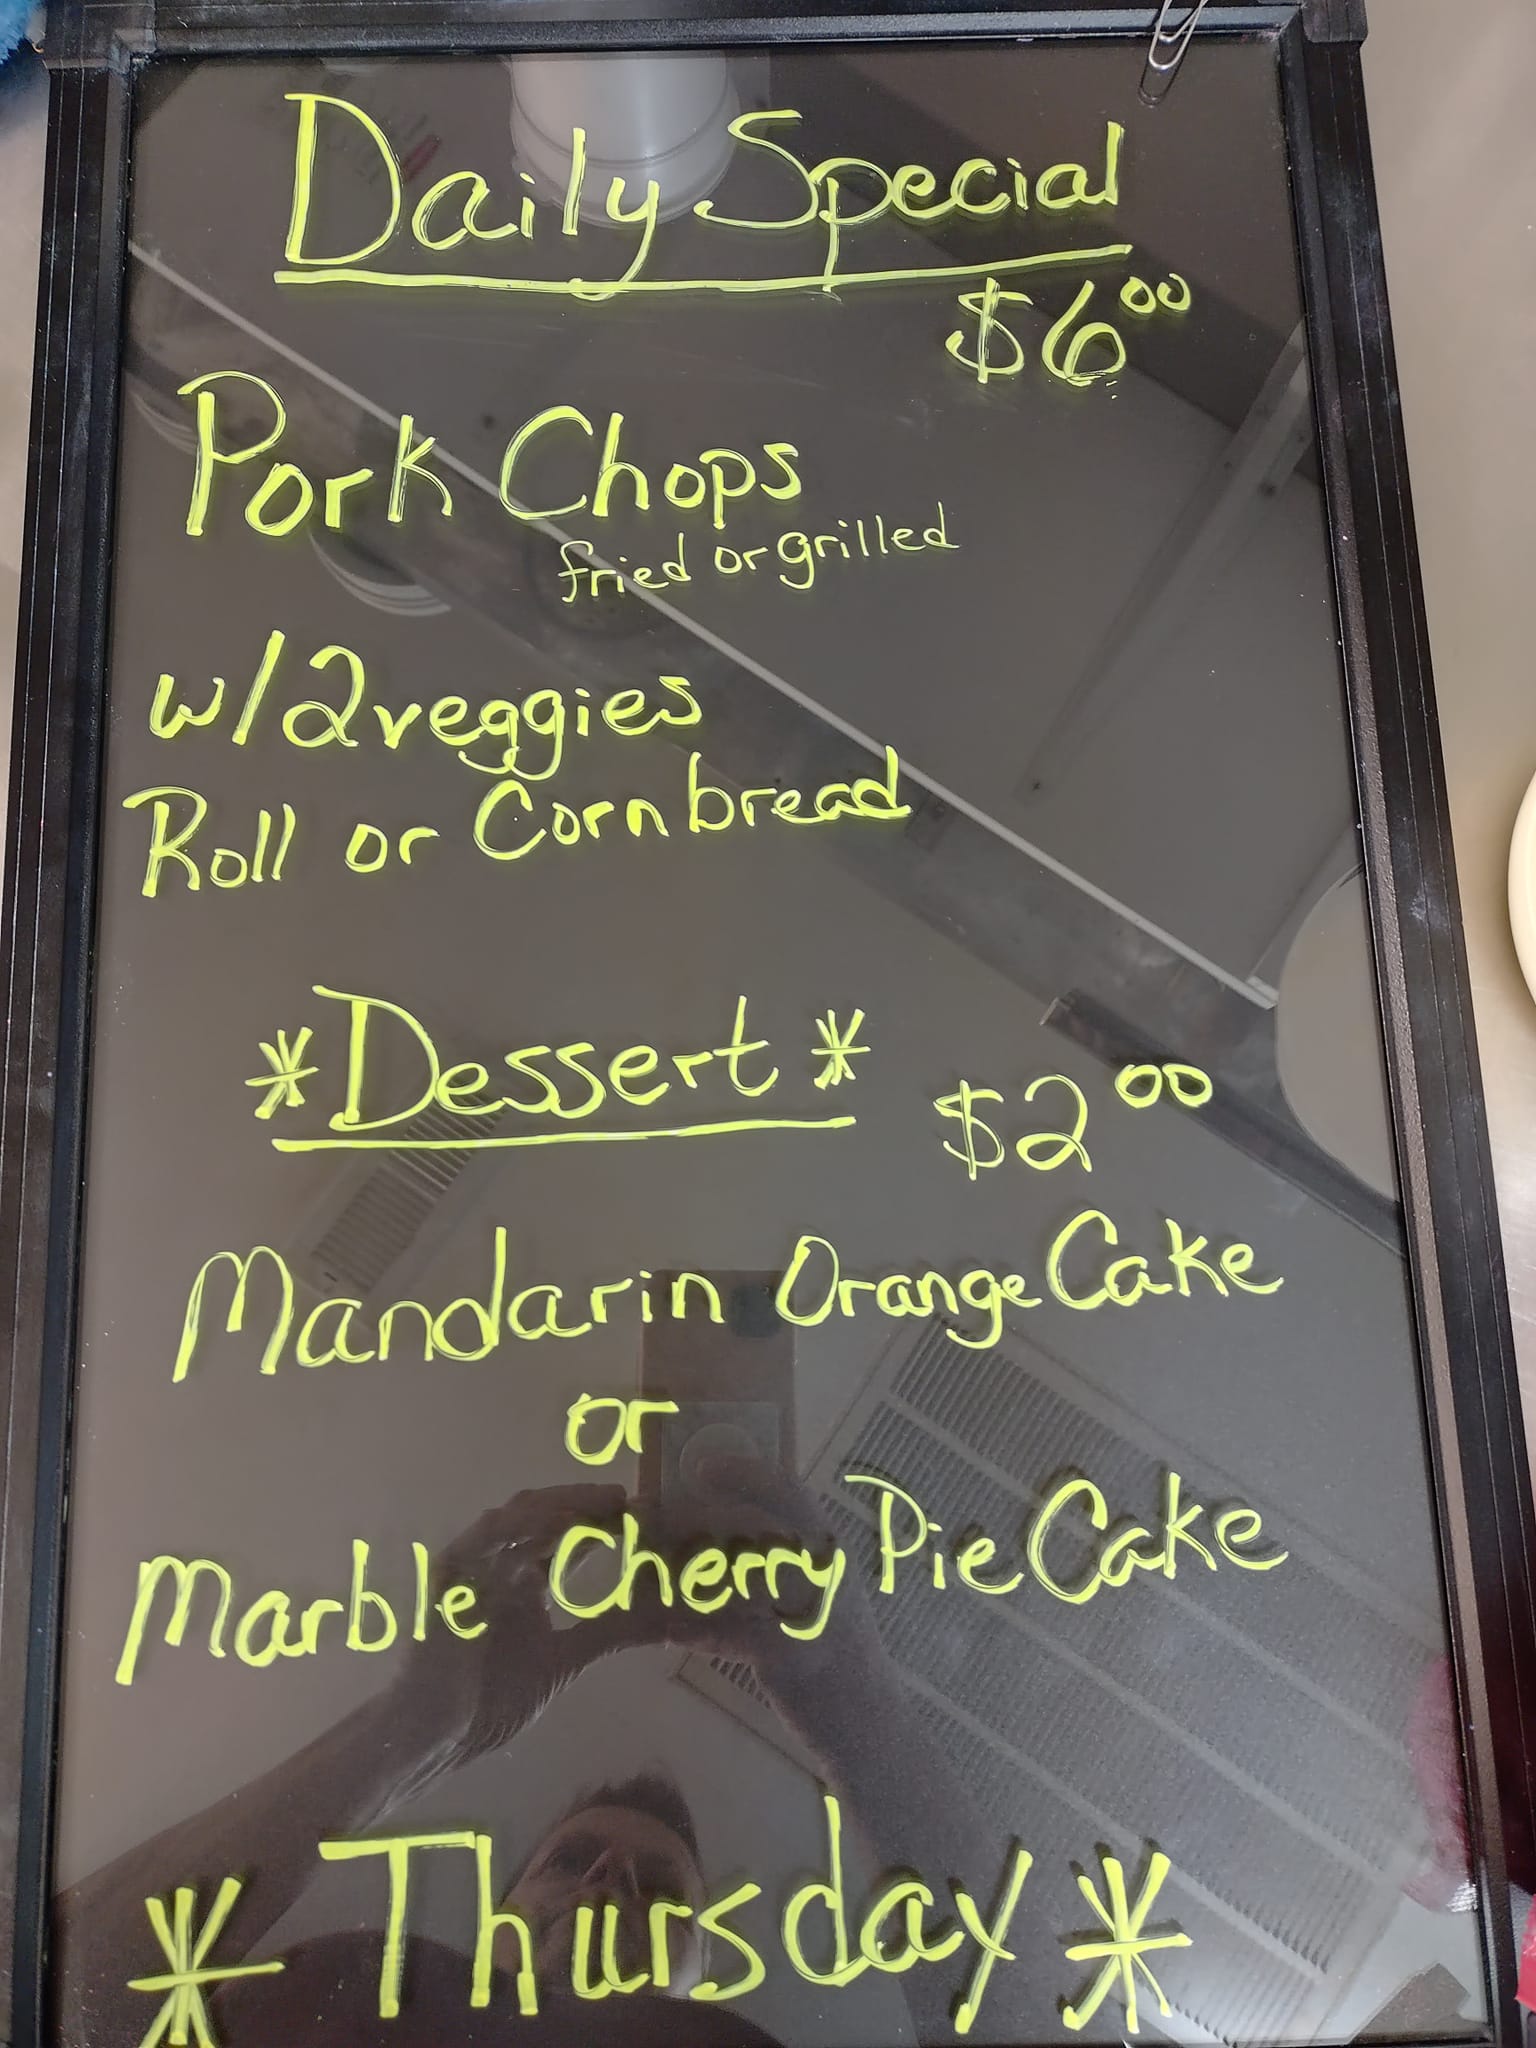 Daily Special
$6.00
Pork Chops
fried or grilled
w/2 veggies
Roll or Cornbread
*Dessert*
$2.00
Mandarin Orange Cake
or
Marble Cherry Pie Cake
*Thursday*